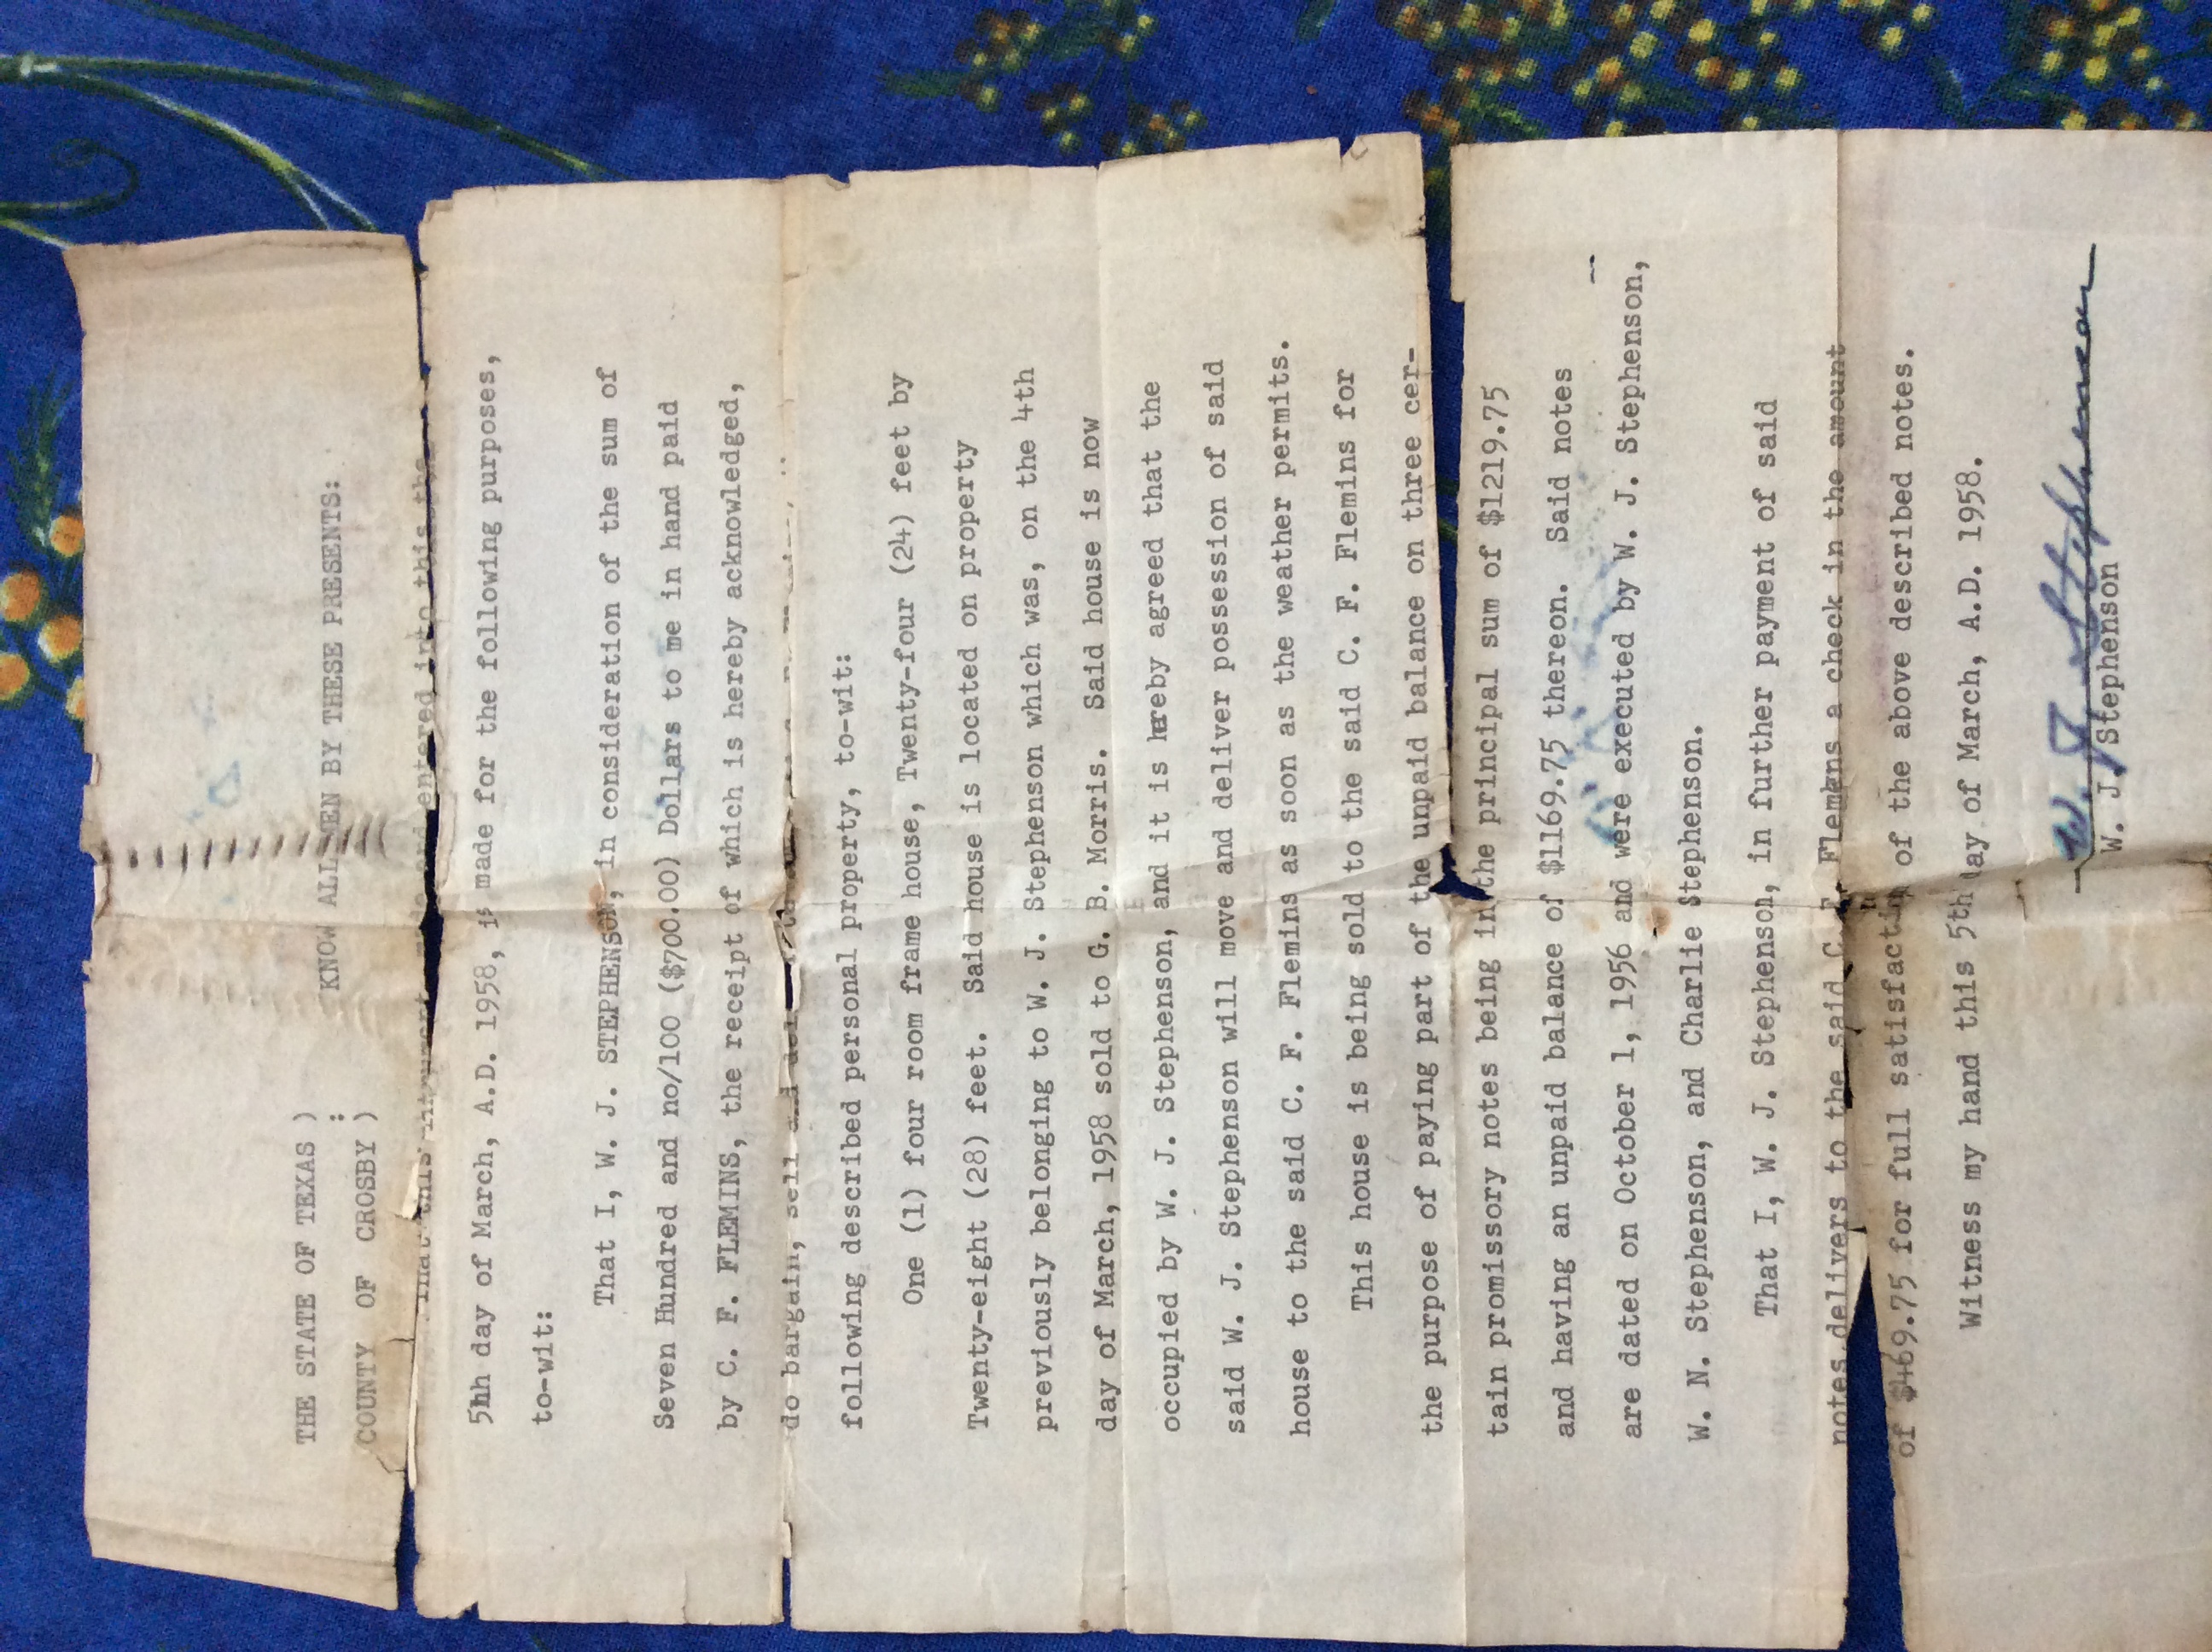 THE STATE OF TEXAS )
: KNOW ALL MEN BY THESE PRESENTS:
COUNTY OF CROSBY )
That this made and entered into this the
5hh day of March, A.D. 1958, is made for the following purposes,
to-wit:
That I, W. J. STEPHENSON, in consideration of the sum of
Seven Hundred and no/100 ($700.00) Dollars to me in hand paid
by C. F. FLEMINS, the receipt of which is hereby acknowledged,
do bargain, sell and
following described personal property, to-wit:
One (1) four room frame house, Twenty-four (24) feet by
Twenty-eight (28) feet. Said house is located on property
previously belonging to W. J. Stephenson which was, on the 4th
day of March, 1958 sold to G. B. Morris. Said house is now
occupied by W. J. Stephenson, and it is hereby agreed that the
said W. J. Stephenson will move and deliver possession of said
house to the said C. F. Flemins as soon as the weather permits.
This house is being sold to the said C. F. Flemins for
the purpose of paying part of the unpaid balance on three cer-
tain promissory notes being in the principal sum of $1219.75
and having an unpaid balance of $1169.75 thereon. Said notes
are dated on October 1, 1956 and were executed by W. J. Stephenson,
W. N. Stephenson, and Charlie Stephenson.
That I, W. J. Stephenson, in further payment of said
notes delivers to the said C. F. Flemens a check in the amount
of $469.75 for full satisfactin of the above described notes.
Witness my hand this 5th day of March, A.D. 1958.
W. J. Stephenson
W. J. Stephenson